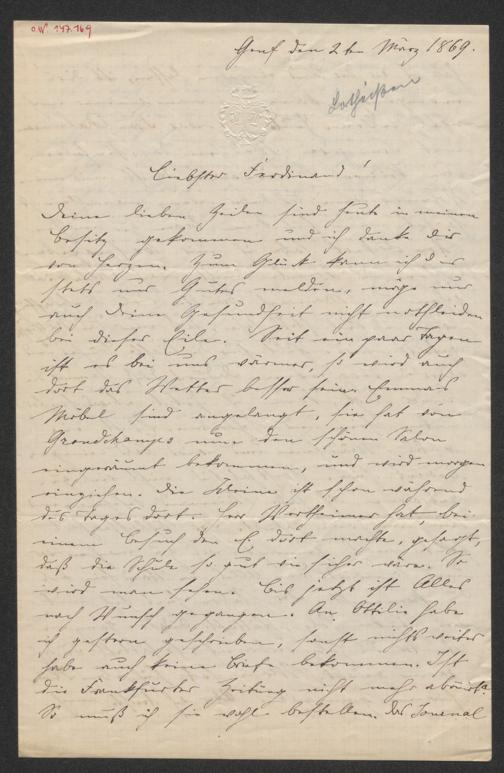 O.N. 147.169
Genf den 2ten März 1869.
Lotheißen
Liebster Ferdinand!
Deine lieben Zeilen sind heute in meinen
Besitz gekommen und ich danke dir
von Herzen. Zum Glück kann ich dir
stets nur Gutes melden, möge nur
auch Deine Gesundheit nicht nothleiden
bei dieser Eile. Seit ein paar Tagen
ist es bei uns wärmer, so wird auch
dort das Wetter besser sein. Emmas
Möbel sind angelangt, sie hat von
Grandchamps nun den schönen Salon
eingeräumt bekommen, und wird morgen
einziehen. Die Kleine ist schon während
des Tages dort. Herr Wertheimer hat, bei
einem Besuch den E. dort machte, gesagt,
daß die Schule so gut wie sicher wäre. So
wird man sehen. Bis jetzt ist Alles
nach Wunsch gegangen. An Ottilie habe
ich gestern geschrieben, sonst nichts weiter
habe auch keine Briefe bekommen. Ist
die Frankfurter Zeitung nicht mehr
So muß ich sie wohl bestellen. Das Journal